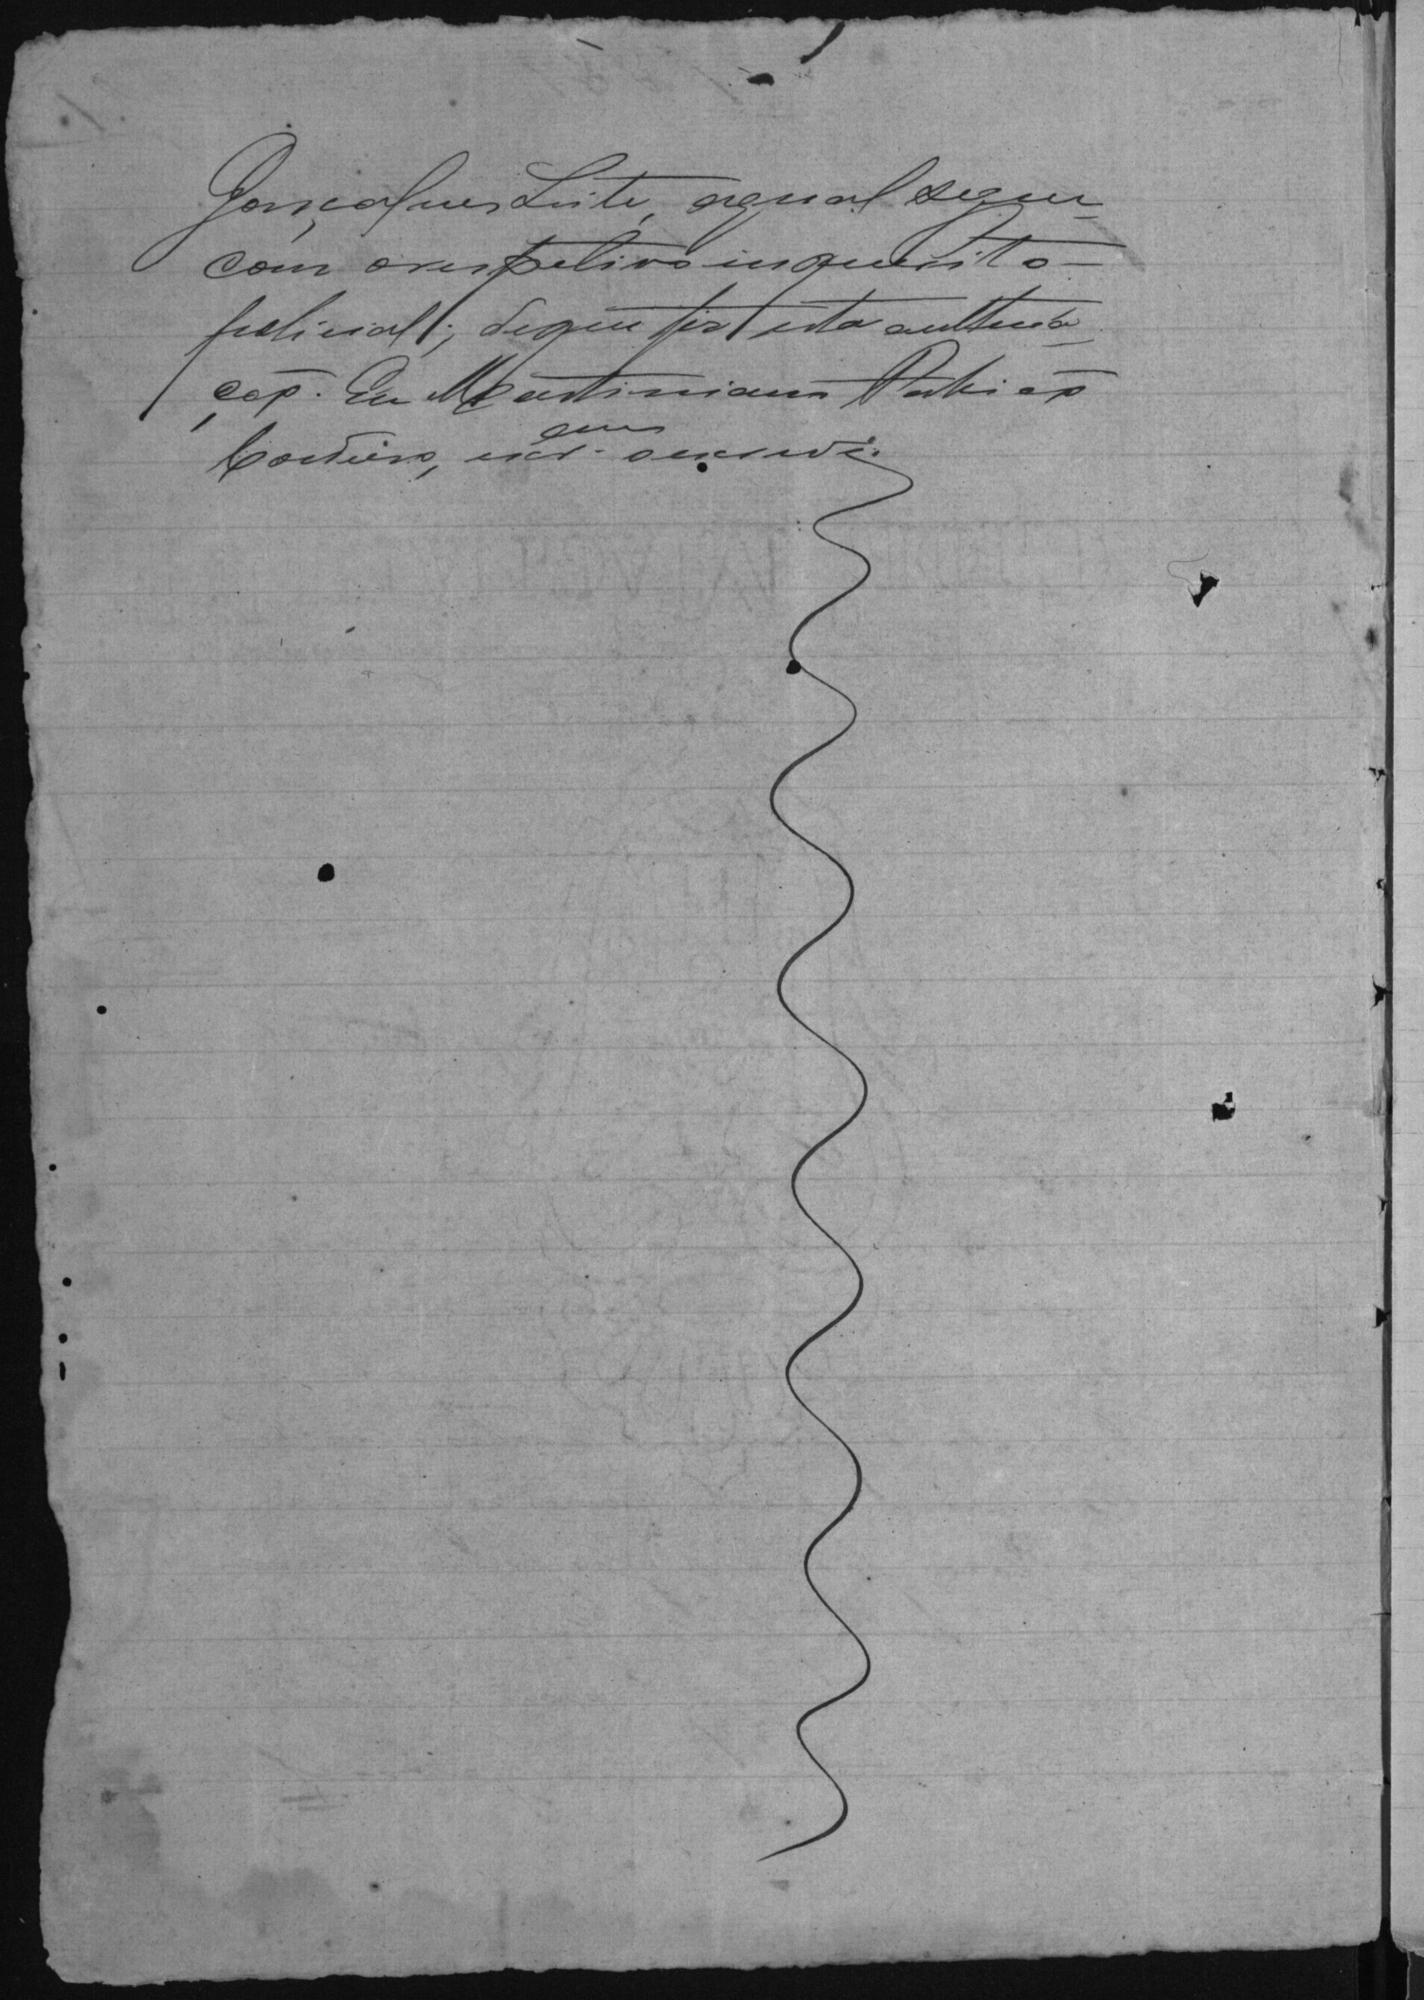 Gonçalves Leite, aqual segue
com orespetivo inquerito
policial; dequefiz esta authua
ção. Eu Martiniano
Cordeiro, escr. que oescrevi.